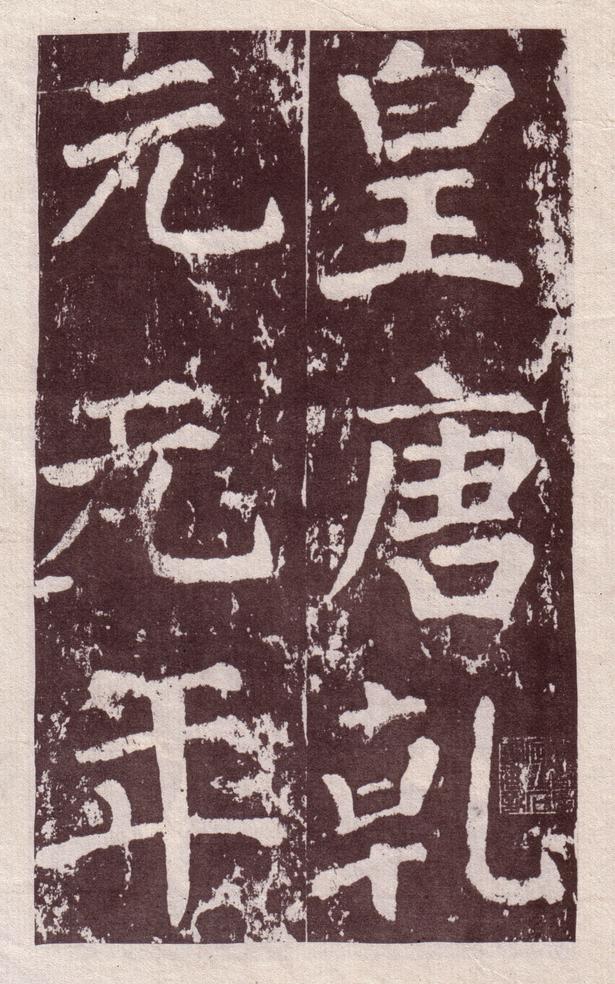 皇唐乹
元元年